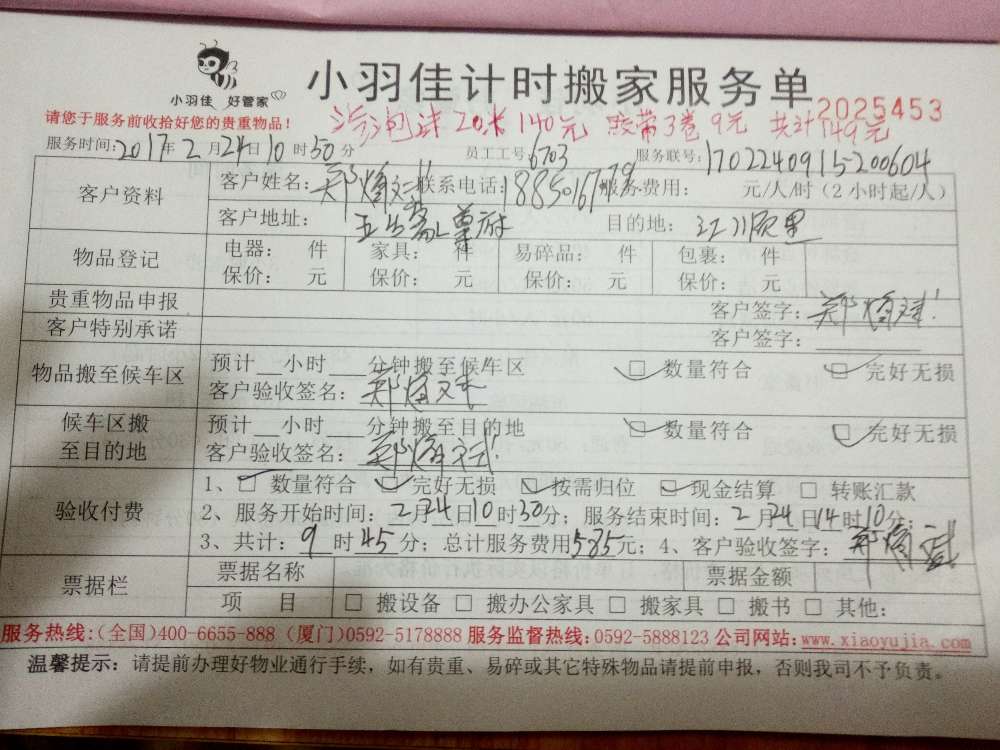 小羽佳 好管家
小羽佳计时搬家服务单
2025453
请您于服务前收拾好您的贵重物品！
汽泡沫20米140元 胶带3卷9元 共计149元
服务时间：2017年2月24日10时30分 员工工号：6703 服务联号：1702240915-200604
客户资料 客户姓名： 联系电话： 服务费用： 元/人/时（2小时起/人）
客户地址： 目的地：
物品登记 电器： 件 家具： 件 易碎品： 件 包裹： 件
保价： 元 保价： 元 保价： 元 保价： 元
贵重物品申报 客户签字：
客户特别承诺 客户签字：
物品搬至候车区 预计__小时___分钟搬至候车区 ☑ 数量符合 ☑ 完好无损
客户验收签名：
候车区搬至目的地 预计__小时___分钟搬至目的地 ☑ 数量符合 ☑ 完好无损
客户验收签名：
验收付费 1、☑ 数量符合 ☑ 完好无损 ☑ 按需归位 ☑ 现金结算 □ 转账汇款
2、服务开始时间：2月24日10时30分；服务结束时间：2月24日14时10分；
3、共计：9时45分；总计服务费用585元；4、客户验收签字：
票据栏 票据名称 票据金额
项 目 □ 搬设备 □ 搬办公家具 □ 搬家具 □ 搬书 □ 其他：
服务热线:(全国)400-6655-888 (厦门)0592-5178888 服务监督热线:0592-5888123 公司网站:www.xiaoyujia.com
温馨提示：请提前办理好物业通行手续，如有贵重、易碎或其它特殊物品请提前申报，否则我司不予负责。